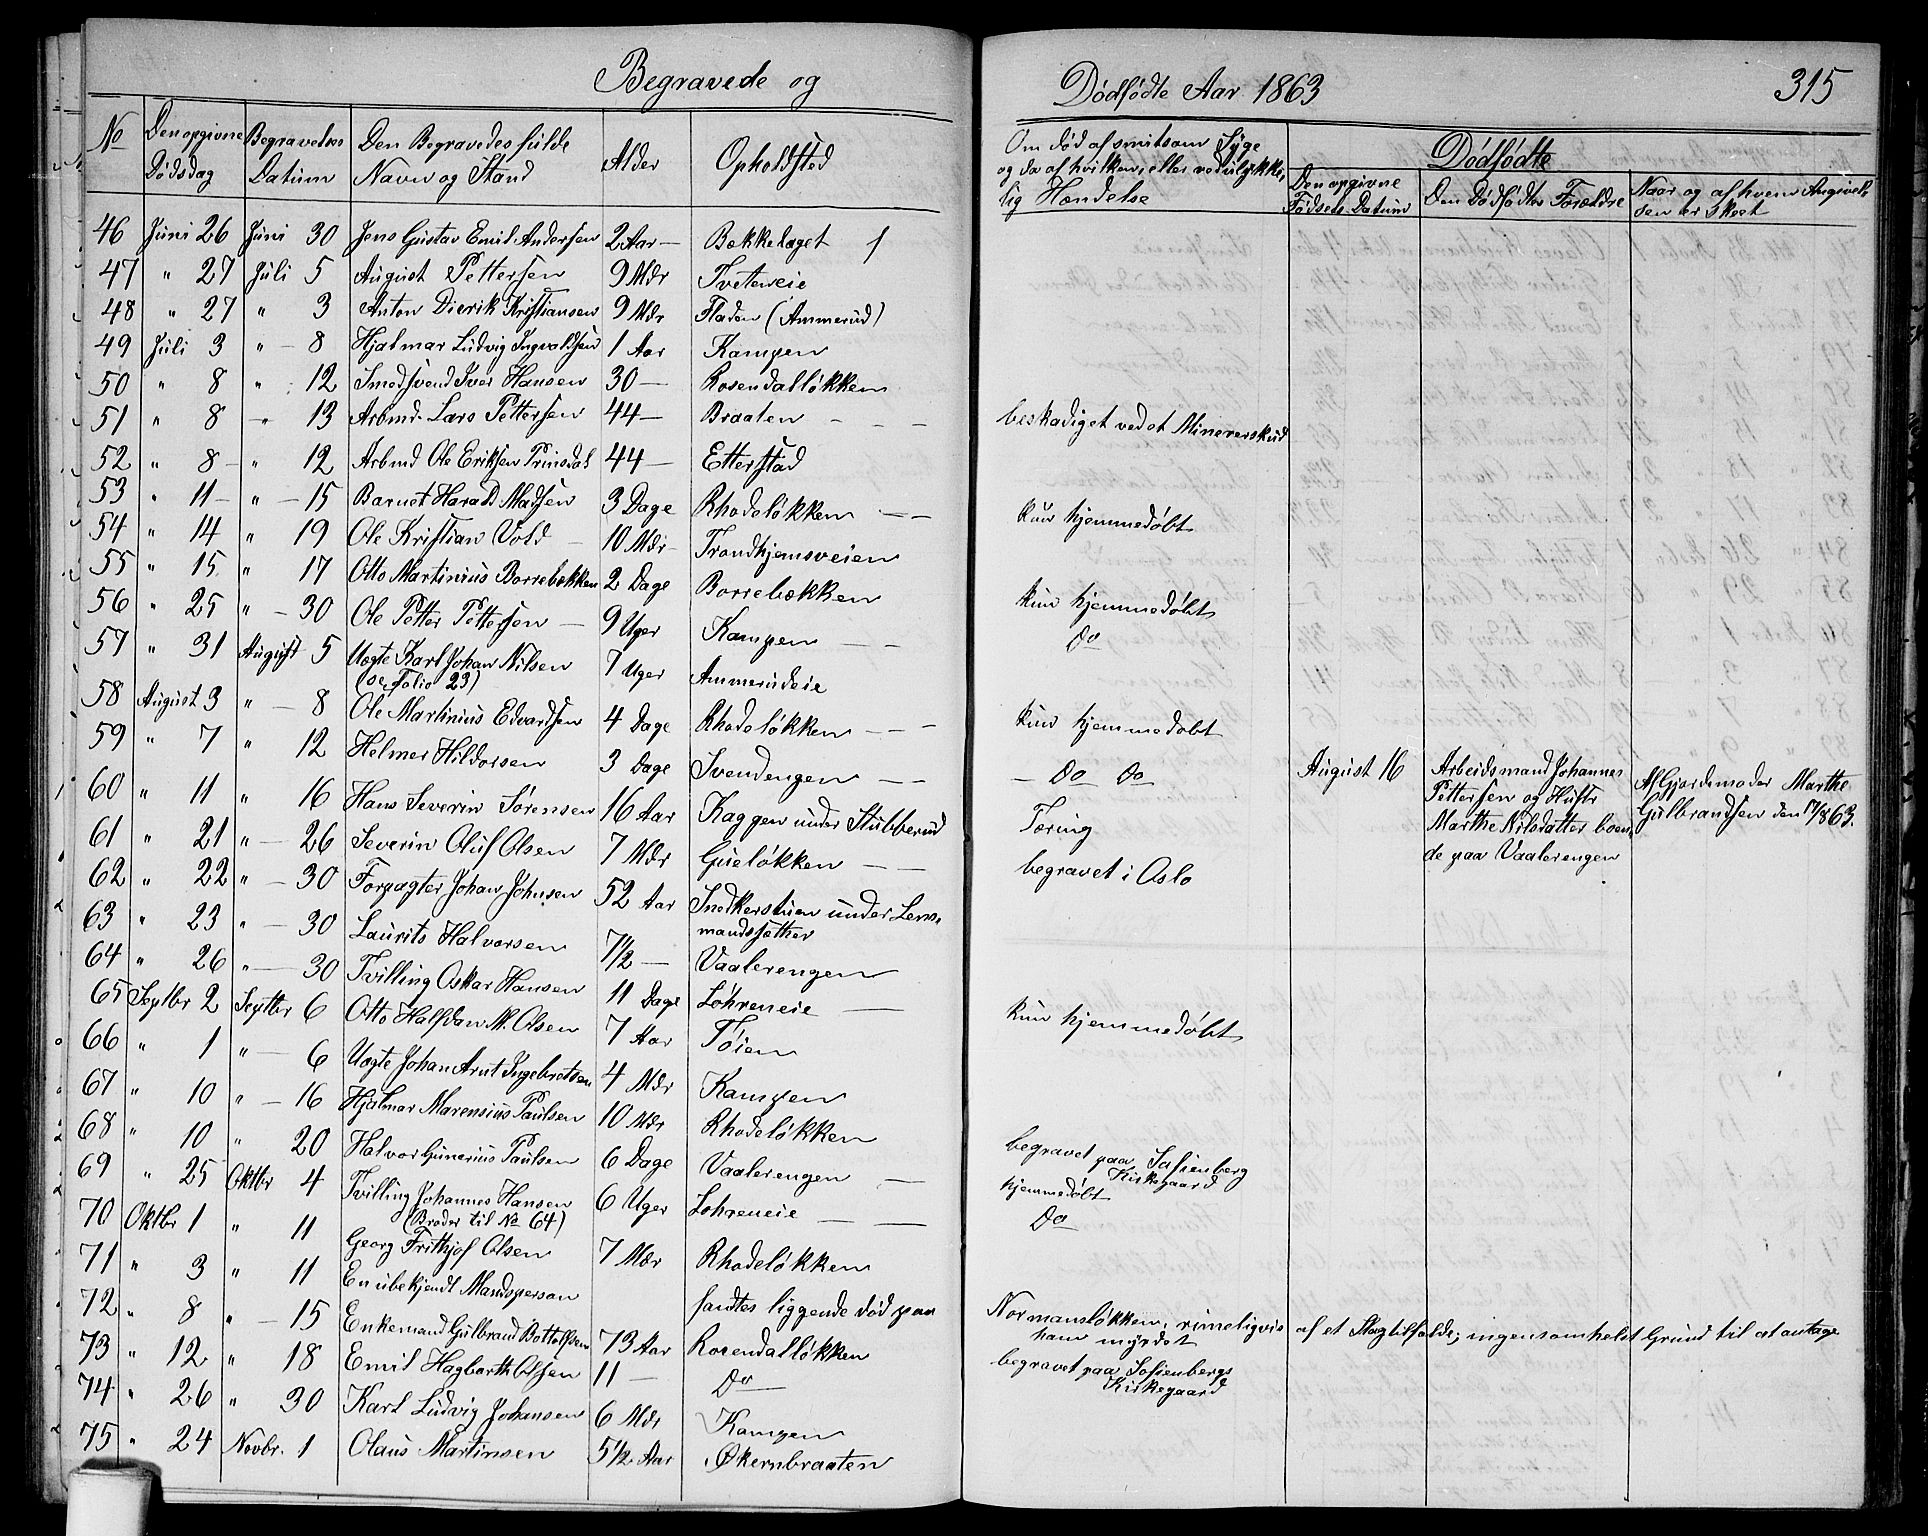 Begravede og
Dødfødte Aar 1863
315
No
Den opgivne Dødsdag
Begravedes Datum
Den Begravedes fulde Navn og Stand
Alder
Opholdsted
Om død af smitsom Syge
og da af hvilken, eller ved ulykke-
lig Hændelse
Dødfødte
Den opgivne Fødsels Datum
Den Dødfødtes Forældre
Naar og af hvem Angivel-
sen er skeet
46 Juni 26 Juni 30 Jens Gustav Emil Andersen 2 Aar — Bækkelaget 1
47 " 27 Juli 5 August Pettersen 9 Mdr Tveteneie
48 " 27 " 3 Anton Dierik Kristiansen 9 Mdr Fladen (Ammerud)
49 Juli 3 " — 8 Hjalmar Ludvig Ingvaldsen 1 Aar Kampen
50 " 8 " 12 Smedsvend Iver Hansen 30 — Rosendalløkken
51 " 8 " 13 Arbmd. Lars Pettersen 44 — Braaten — — — beskadiget ved et Mineerskud
52 " 8 — " 12 Arbmd Ole Eriksen Prinsdal 44 — Etterstad
53 " 11 — " — 15 Barnet Harald Madsen 3 Dage Rhodeløkken — — kun hjemmedøbt
54 " 14 " 19 Ole Kristian Vold — 10 Mdr Trondhjemsveien
55 " 15 " 17 Otto Martinius Borrebækken 2 Dage Borrebækken kun hjemmedøbt
56 " 25 " — 30 Ole Petter Pettersen — 9 Uger Kampen — — Do
57 " 31 August 5 Uægte Karl Johan Nilsen 7 Uger Ammerudeie
(se Folio 23)
58 August 3 " — 8 Ole Martinius Edvardsen 4 Dage Rhodeløkken — — — kun hjemmedøbt
59 " 7 " 12 Helmer Hildorsen 3 Dage Svendengen — — — Do Do
August 16
Arbeidsmand Johannes
Pettersen og Hustr
Marthe Nilsdatter boen-
de paa Vaalerengen
Af Gjordemoder Marthe
Gulbrandsen den 17/8 63.
60 " 11 " 16 Hans Severin Sørensen 16 Aar Kaggen under Stubberud Tæring
61 " 21 " — 26 Severin Oluf Olsen 7 Mdr Guseløkken — begravet i Oslo
62 " 22 " — 30 Forpagter Johan Johnsen 52 Aar Snedkerstuen under Lens-
mandssæther
63 " 23 " — 30 Laurits Halvorsen 7 1/2 — Vaalerengen
64 " 26 " — 30 Tvilling Oskar Hansen 11 Dage Lohreneie — kun hjemmedøbt
65 Septbr 2 Septbr 6 Otto Halfdan M. Olsen 7 Aar Tøien
66 " 1 " — 6 Uægte Johan Arnt Ingebretsen 4 Mdr Kampen
67 " 10 " — 16 Hjalmar Marensius Paulsen 10 Mdr Rhodeløkken
68 " 10 " 20 Halvor Gunerius Paulsen 6 Dage Vaalerengen — begravet paa Sofienberg
Kirkegaard
hjemmedøbt
69 " 25 Oktbr 4 Tvilling Johannes Hansen 6 Uger Lohreneie — — Do
(Broder til No 64)
70 Oktbr 1 " 11 Georg Frithjof Olsen 7 Mdr Rhodeløkken
71 " 3 " 11 En ubekjendt Mandsperson fandtes liggende død paa Normansløkken, rimeligvis af et Slagtilfælde; ingensomhelst Grund til at antage
ham myrdet
72 " 8 " — 15 Enkemand Gulbrand Bottolfsen 73 Aar Rosendalløkken begravet paa Sofienbergs
Kirkegaard
73 " 12 " 18 Emil Hagbarth Olsen 11 — Do
74 " 26 " 30 Karl Ludvig Johansen 6 Mdr Kampen
75 " 24 Novbr. 1 Olaus Martinsen 5 1/2 Aar Økernbraaten